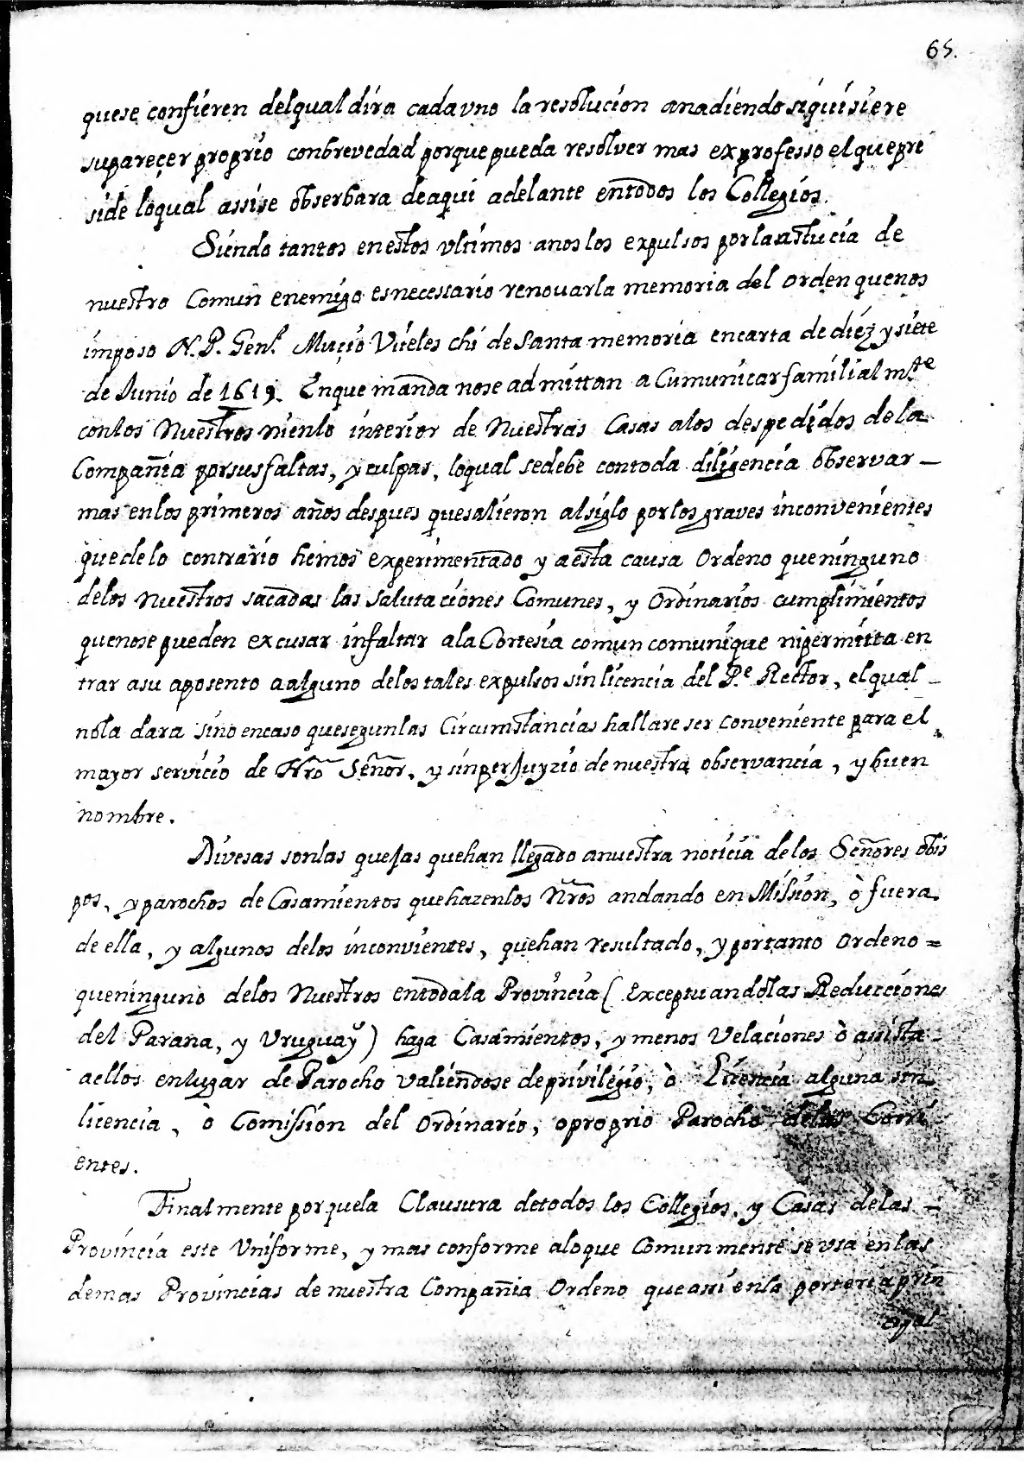 65.
quese confieren delqual dira cadauno la resolucion anadiendo siquisiere
supareçer proprio conbrevedad porque pueda resolver mas exprofesso elquepre
side loqual assi se obserbara deaqui adelante entodos los Collegios.
Siendo tantos enestos vltimos anos los expulsos por la astucia de
nuestro Comun enemigo esnecessario renouarla memoria del orden quenos
imposo N.P. Genl. Muçio Viteles chi de Santa memoria encarta de diez y siete
de Junio de 1619. Enque manda nose admittan a Cumunicar familialmte
conlos Nuestros nienlo interior de Nuestras Casas alos despedidos de la
Compañia porsusfaltas, y culpas, loqual sedebe contoda diligencia observar —
mas enlos primeros años despues quesalieron alsiglo porlos graves inconvenientes
quedelo contrario hemos experimentado y aesta causa Ordeno queninguno
delos Nuestros sacadas las salutaciones Comunes, y Ordinarios cumplimientos
quenosepueden excusar infaltar ala Cortesia comun comunique nipermitta en
trar asu aposento aalguno delostales expulsos sinlicencia del Pe. Rector, elqual –
nola dara sino encaso quesegunlas Circumstancias hallare ser conveniente para el
mayor servicio de Nro Señor, y sinperjuyzio de nuestra observancia, y buen
nombre.
Divesas sonlas quejas quehan llegado anuestra noticia delos Señores obis
pos, y parochos de Casamientos quehazenlos Nros andando en Mission, ò fuera
de ella, y algunos delos inconvientes, quehan resultado, yportanto Ordeno =
queninguno delos Nuestros entodala Provincia ( Exceptuandolas Reducciones
del Parana, y Uruguay ) haga Casamientos, y menos Velaciones ò assista –
aellos enlugar de Parocho valiendose deprivilegio, ò Licencia alguna sin
licencia, ò Comission del Ordinario, oproprio Parocho delos Corri
entes.
Finalmente porquela Clausura detodos los Collegios, y Casas delas —
Provincia este Uniforme, y mas conforme aloque Comunmente se vsa enlas
demas Provincias de nuestra Compañia Ordeno queassi enla porteria prin
cipal